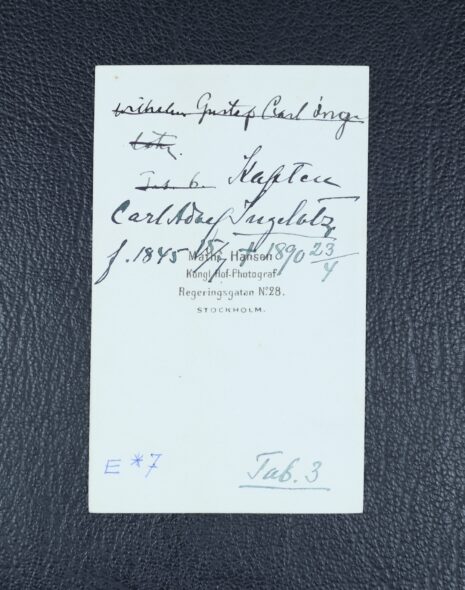 Wilhelm Gustaf Carl Inge
lotz.
Tab. 6. Kapten
Carl Adolf Ingelotz
f. 1845 15/7 † 1890 23/4
Mathi. Hansen
Kongl. Hof-Photograf
Regeringsgatan No 28.
STOCKHOLM.
E *7
Tab. 3